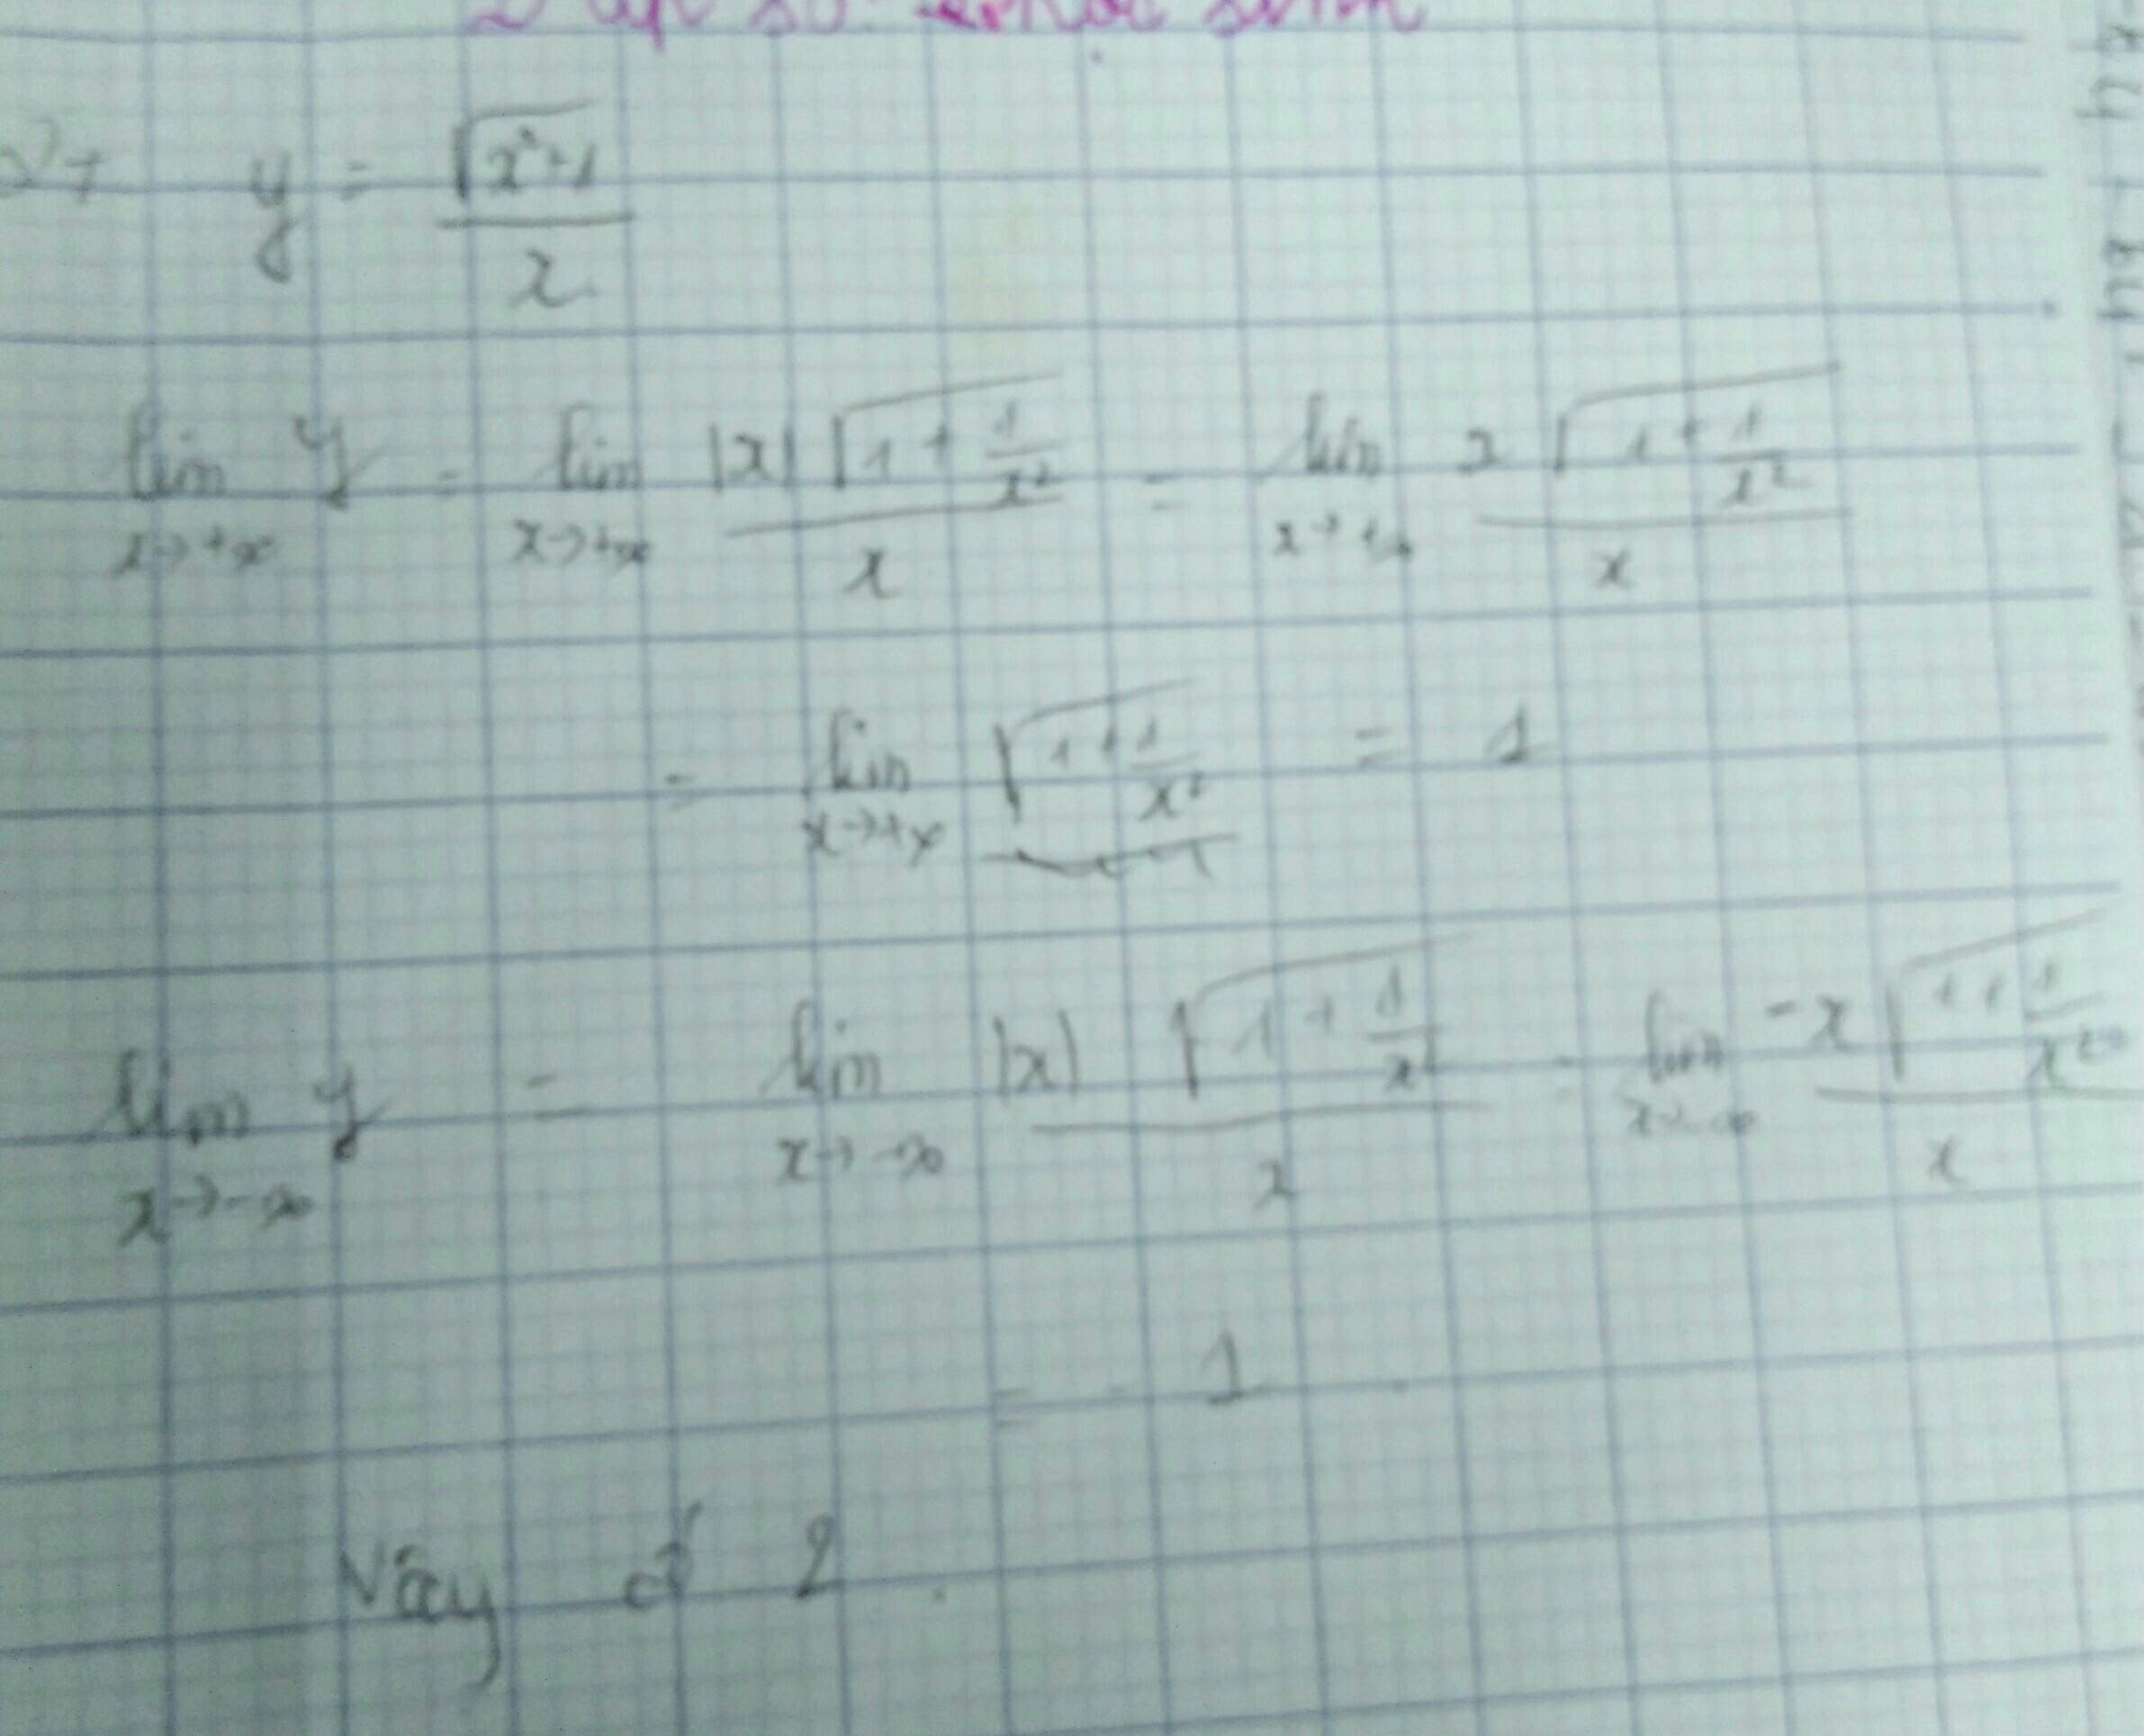 y = √(x²+1) / x
lim x→+∞ y = lim x→+∞ |x|√(1 + 1/x²) / x = lim x→+∞ x√(1 + 1/x²) / x
= lim x→+∞ √(1 + 1/x²) = 1
lim x→-∞ y = lim x→-∞ |x|√(1 + 1/x²) / x = lim x→-∞ -x√(1 + 1/x²) / x
= -1
Vậy có 2.